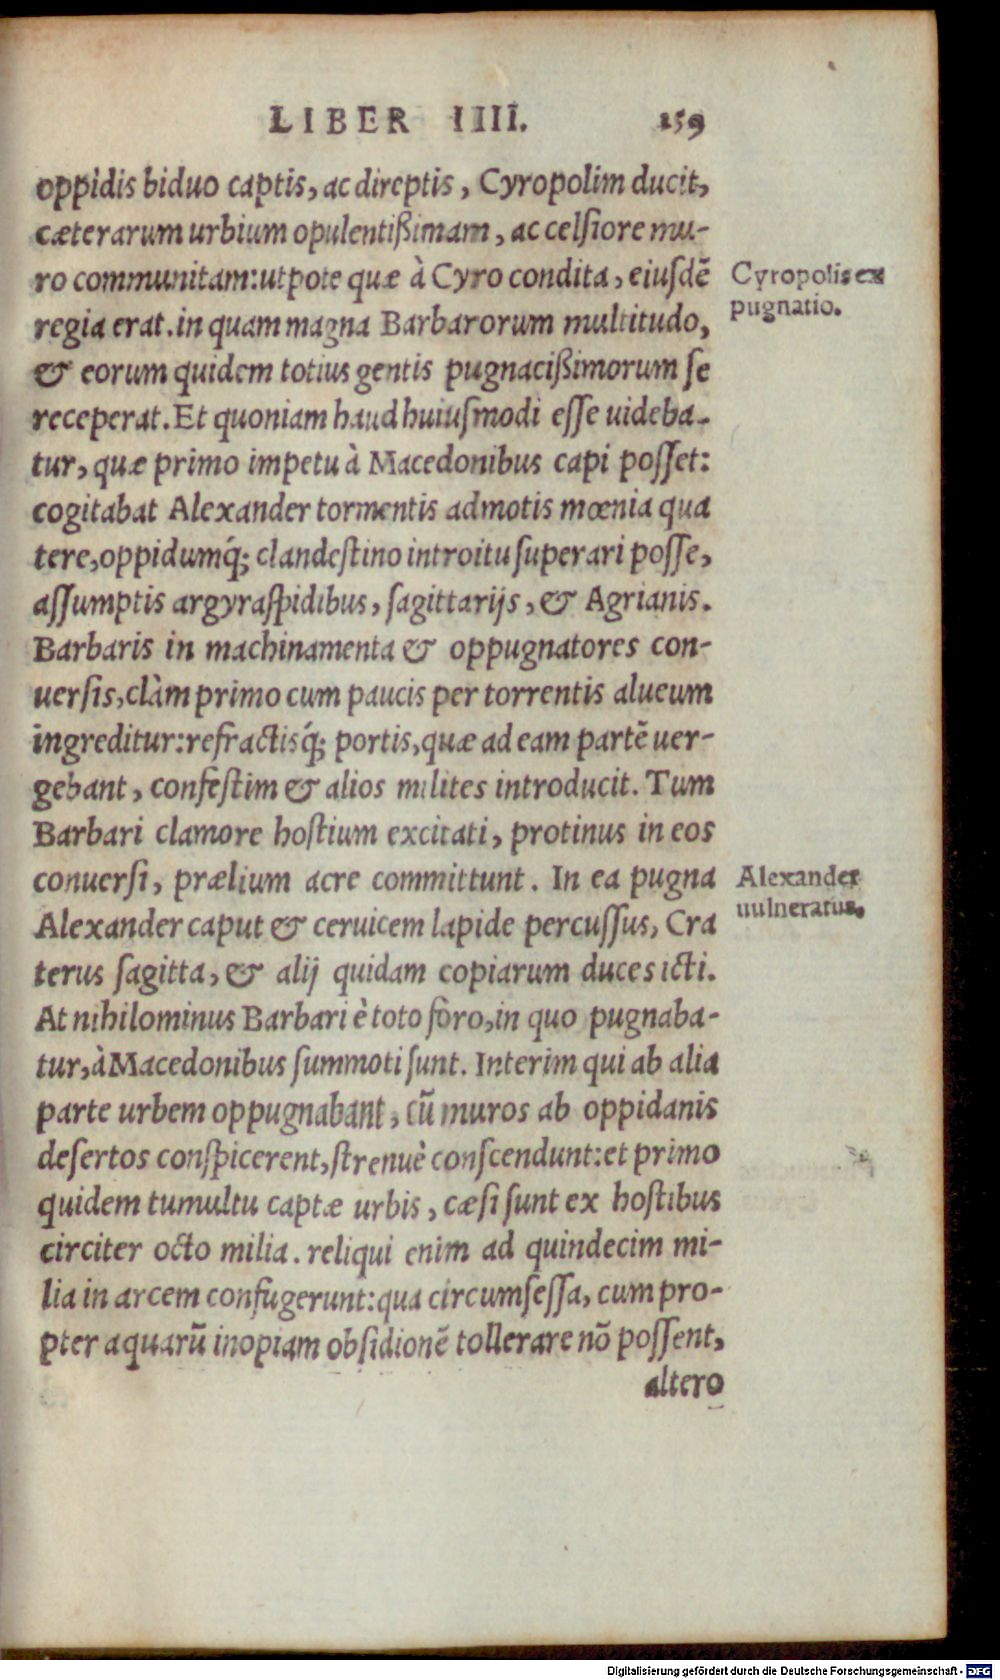 LIBER IIII. 159
oppidis biduo captis, ac direptis, Cyropolim ducit,
cæterarum urbium opulentißimam, ac celsiore mu-
ro communitam: utpote quæ à Cyro condita, eiusdẽ
regia erat. in quam magna Barbarorum multitudo,
& eorum quidem totius gentis pugnacißimorum se
receperat. Et quoniam haud huiusmodi esse uideba-
tur, quæ primo impetu à Macedonibus capi posset:
cogitabat Alexander tormentis admotis mœnia qua
tere, oppidumq́; clandestino introitu superari posse,
assumptis argyraspidibus, sagittarijs, & Agrianis.
Barbaris in machinamenta & oppugnatores con-
uersis, clàm primo cum paucis per torrentis alueum
ingreditur: refractisq́; portis, quæ ad eam partẽ uer-
gebant, confestim & alios milites introducit. Tum
Barbari clamore hostium excitati, protinus in eos
conuersi, prælium acre committunt. In ea pugna
Alexander caput & ceruicem lapide percussus, Cra
terus sagitta, & alij quidam copiarum duces icti.
At nihilominus Barbari è toto foro, in quo pugnaba-
tur, à Macedonibus summoti sunt. Interim qui ab alia
parte urbem oppugnabant, cũ muros ab oppidanis
desertos conspicerent, strenuè conscendunt: et primo
quidem tumultu captæ urbis, cæsi sunt ex hostibus
circiter octo milia. reliqui enim ad quindecim mi-
lia in arcem confugerunt: qua circumsessa, cum pro-
pter aquarũ inopiam obsidionẽ tollerare nõ possent,
altero
Cyropolis ex
pugnatio.
Alexander
uulneratus.
Digitalisierung gefördert durch die Deutsche Forschungsgemeinschaft - DFG